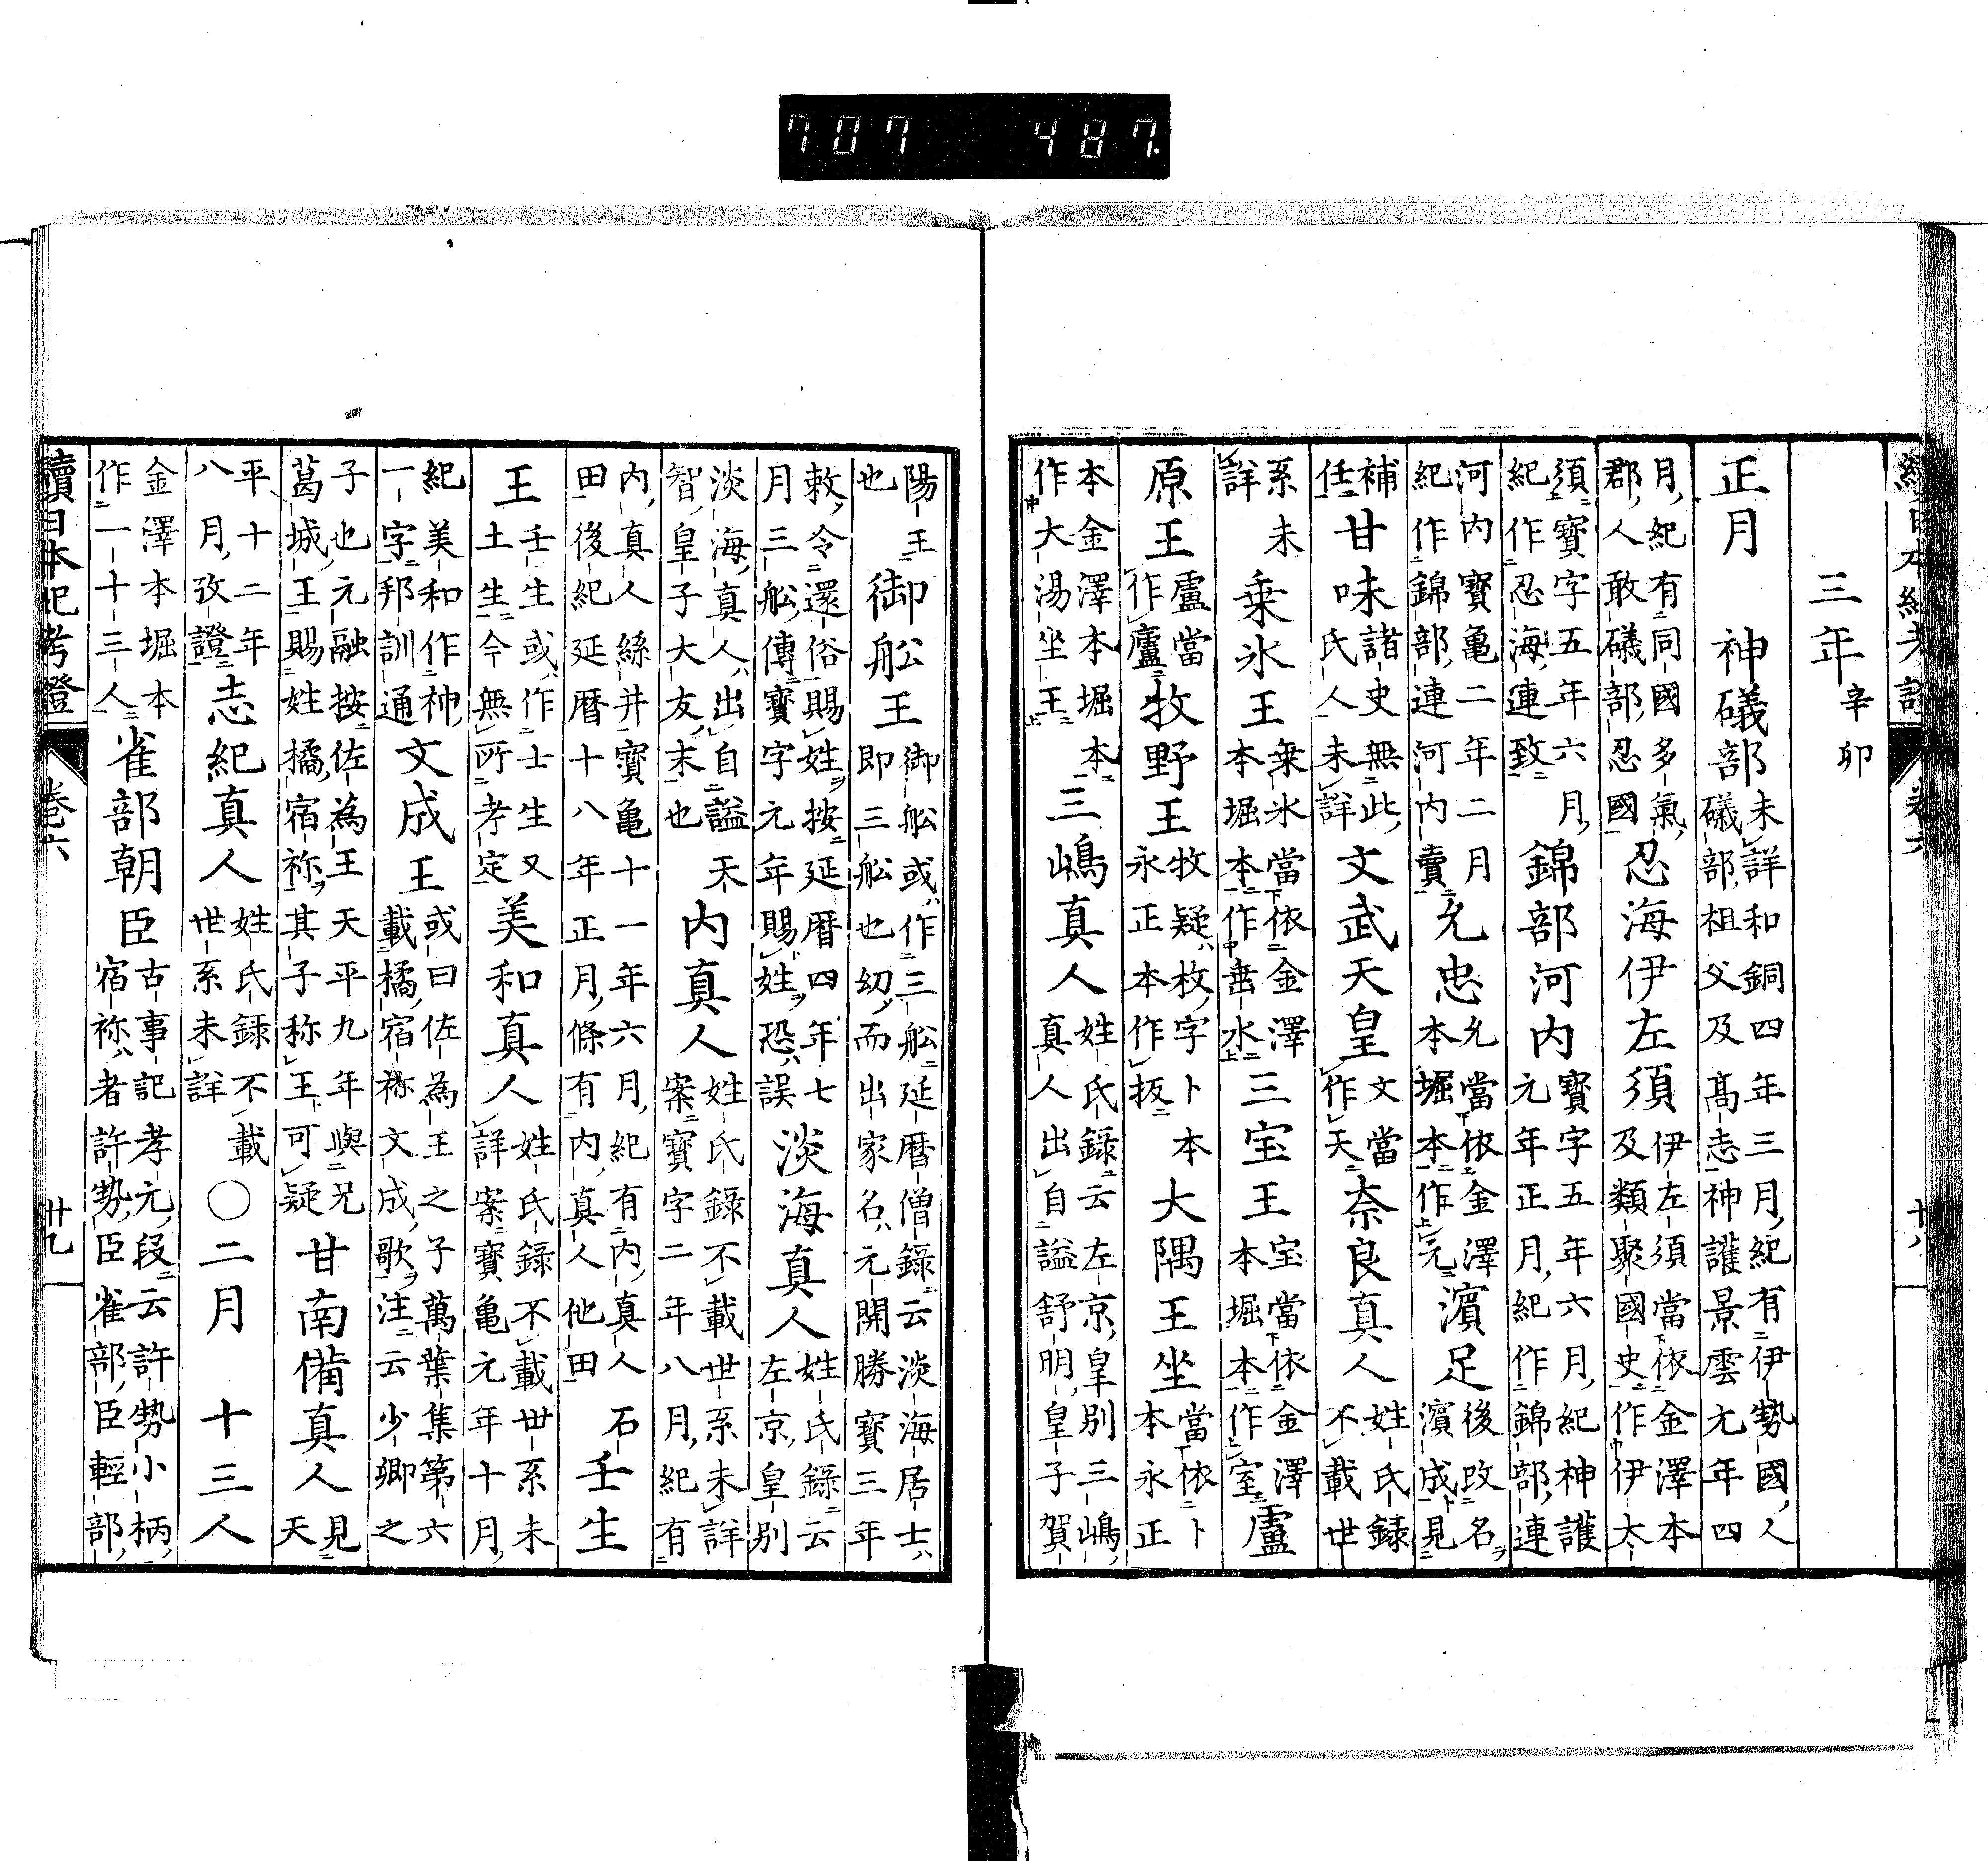 707 487.
三年辛卯
正月 神礒部未詳和銅四年三月紀有伊勢國人礒部祖父及髙志神護景雲元年四
月紀有同國多氣郡人敢礒部忍國忍海伊左須伊左須當依金澤本及類聚國史作伊太
須寳字五年六月紀作忍海連致錦部河内寳字五年六月紀神護元年正月紀作錦部連
河内寳亀二年二月紀作錦部連河内賣允忠允當依金澤本堀本作元濵足後改名濵成見
補任甘味諸史無此氏人未詳文武天皇文當作天奈良真人姓氏録不載世
系未詳乗氷王乗氷當依金澤本堀本作垂水三宝王宝當依金澤本堀本作室盧
原王盧當作廬牧野王牧疑枚字卜本永正本作扳大隅王坐當依卜本永正
本金澤本堀本作大湯坐王三嶋真人姓氏録云左京皇別三嶋真人出自謚舒明皇子賀
陽王也御舩王御舩或作三舩延暦僧録云淡海居士即三舩也幼而出家名元開勝寳三年
敕令還俗賜姓按延暦四年七月三舩傳寳字元年賜姓恐誤淡海真人姓氏録云左京皇別
淡海真人出自謚天智皇子大友末也内真人姓氏録不載世系未詳案寳字二年八月紀有
内真人絲井寳亀十一年六月紀有内真人石田後紀延暦十八年正月條有内真人他田壬生
王壬生或作士生又土生今無所考定美和真人姓氏録不載世系未詳案寳亀元年十月
紀美和作神一字邦訓通文成王或曰佐為王之子萬葉集第六載橘宿祢文成歌注云少卿之
子也元融按佐為王天平九年與兄葛城王賜姓橘宿祢其子称王可疑甘南備真人見天
平十二年八月攷證志紀真人姓氏録不載世系未詳〇二月 十三人
金澤本堀本作一十三人雀部朝臣古事記孝元段云許勢小柄宿祢者許勢臣雀部臣輕部
續日本紀考證 卷六 廿九